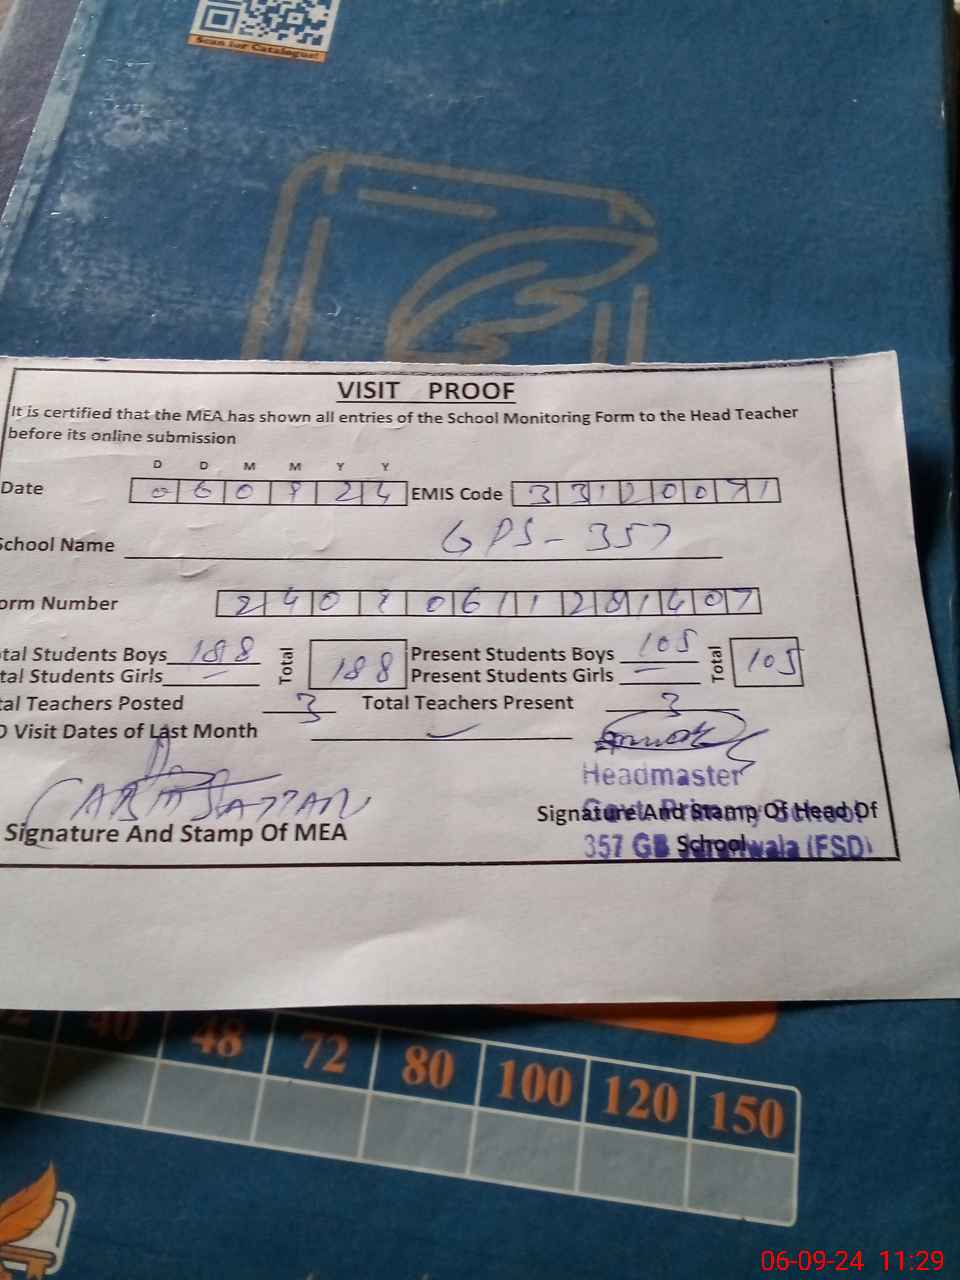 Scan for Catalogue!
VISIT PROOF
It is certified that the MEA has shown all entries of the School Monitoring Form to the Head Teacher
before its online submission
D D M M Y Y
Date 0 6 0 9 2 4 EMIS Code 3 3 1 2 0 0 7 1
School Name GPS - 357
orm Number 2 4 0 9 0 6 1 1 2 8 1 4 0 7
tal Students Boys 188 Total 188 Present Students Boys 105 Total 105
tal Students Girls – Present Students Girls –
al Teachers Posted 3 Total Teachers Present 3
O Visit Dates of Last Month
Headmaster
Signature And Stamp Of MEA
Signature And Stamp Of Head Of
Govt. Primary School
School
357 GB (FSD)
40 48 72 80 100 120 150
06-09-24 11:29